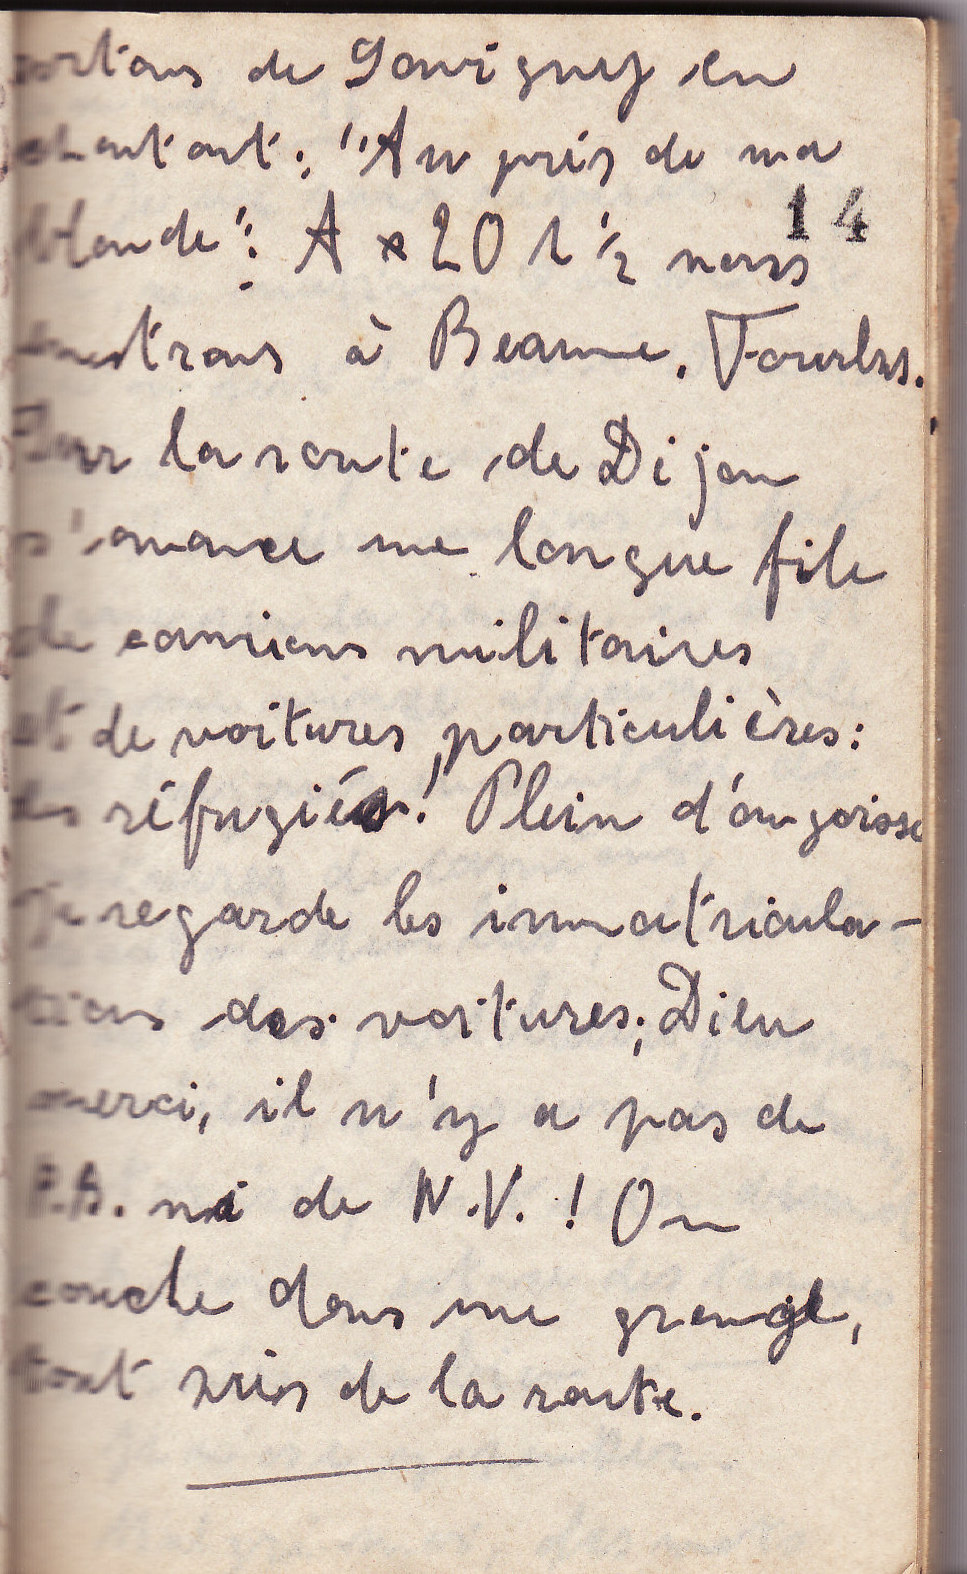 sortons de Savigny en
chantant: "Au près de ma
14
blonde": A 20 h ½ nous
entrons à Beaune.
Sur la route de Dijon
s'avance une longue file
de camions militaires
et de voitures particulières:
des réfugiés! Plein d'angoisse
je regarde les immatricula-
tions des voitures; Dieu
merci, il n'y a pas de
P.B. ni de N.V.! On
couche dans une grange,
tout près de la route.